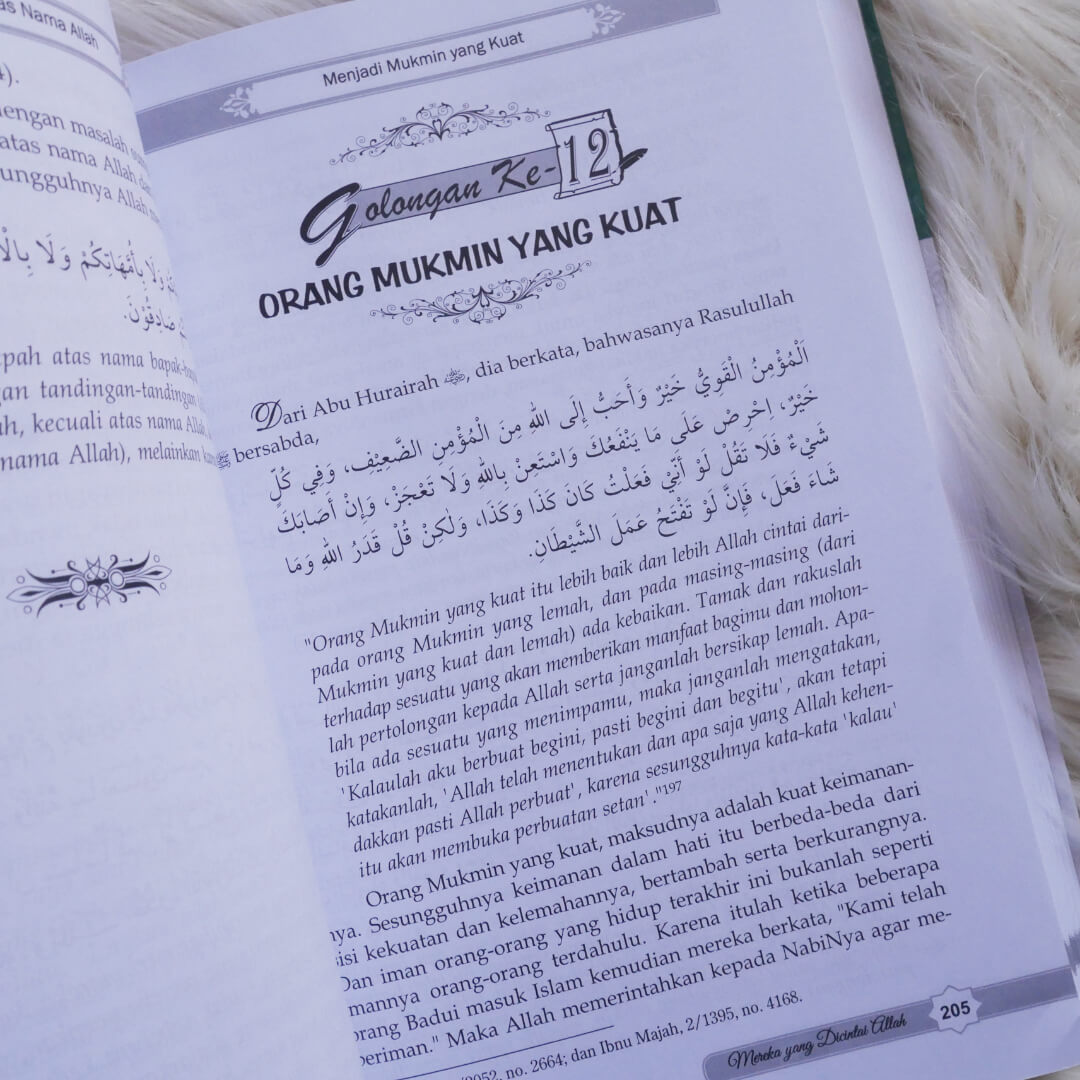 as Nama Allah
4).
dengan masalah
atas nama Allah
sungguhnya Allah
وَلَا بِأُمَّهَاتِكُمْ وَلَا
صَادِقُوْنَ.
pah atas nama bapak-
gan tandingan-tandingan
ah, kecuali atas nama Allah
nama Allah), melainkan
Menjadi Mukmin yang Kuat
Golongan Ke-12
ORANG MUKMIN YANG KUAT
Dari Abu Hurairah ﷺ, dia berkata, bahwasanya Rasulullah
ﷺ bersabda,
اَلْمُؤْمِنُ الْقَوِيُّ خَيْرٌ وَأَحَبُّ إِلَى اللّٰهِ مِنَ الْمُؤْمِنِ الضَّعِيْفِ، وَفِي كُلٍّ
خَيْرٌ، اِحْرِصْ عَلَى مَا يَنْفَعُكَ وَاسْتَعِنْ بِاللّٰهِ وَلَا تَعْجَزْ، وَإِنْ أَصَابَكَ
شَيْءٌ فَلَا تَقُلْ لَوْ أَنِّيْ فَعَلْتُ كَانَ كَذَا وَكَذَا، وَلٰكِنْ قُلْ قَدَرُ اللّٰهِ وَمَا
شَاءَ فَعَلَ، فَإِنَّ لَوْ تَفْتَحُ عَمَلَ الشَّيْطَانِ.
"Orang Mukmin yang kuat itu lebih baik dan lebih Allah cintai dari-
pada orang Mukmin yang lemah, dan pada masing-masing (dari
Mukmin yang kuat dan lemah) ada kebaikan. Tamak dan rakuslah
terhadap sesuatu yang akan memberikan manfaat bagimu dan mohon-
lah pertolongan kepada Allah serta janganlah bersikap lemah. Apa-
bila ada sesuatu yang menimpamu, maka janganlah mengatakan,
'Kalaulah aku berbuat begini, pasti begini dan begitu', akan tetapi
katakanlah, 'Allah telah menentukan dan apa saja yang Allah kehen-
dakkan pasti Allah perbuat', karena sesungguhnya kata-kata 'kalau'
itu akan membuka perbuatan setan'."197
Orang Mukmin yang kuat, maksudnya adalah kuat keimanan-
nya. Sesungguhnya keimanan dalam hati itu berbeda-beda dari
sisi kekuatan dan kelemahannya, bertambah serta berkurangnya.
Dan iman orang-orang yang hidup terakhir ini bukanlah seperti
imannya orang-orang terdahulu. Karena itulah ketika beberapa
orang Badui masuk Islam kemudian mereka berkata, "Kami telah
beriman." Maka Allah memerintahkan kepada NabiNya agar me-
/2052, no. 2664; dan Ibnu Majah, 2/1395, no. 4168.
Mereka yang Dicintai Allah
205